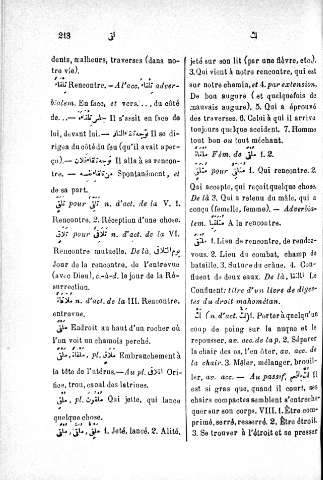 218
لق
لك
dents, malheurs, traverses (dans no-
tre vie).
تِلْقَاءٌ Rencontre. — A l'acc. تِلْقَاءَ adver-
bialem. En face, et vers..., du côté
de... — جلس تلقاءه Il s'assit en face de
lui, devant lui. — توجه تلقاء النار Il se di-
rigea du côté du feu (qu'il avait aper-
çu). — Il alla à sa rencon-
tre. — Spontanément, et
de sa part.
pour n. d'act. de la V. 1.
Rencontre. 2. Réception d'une chose.
pour n. d'act. de la VI.
Rencontre mutuelle. De là, يوم التلاقى
Jour de la rencontre, de l'entrevue
(avec Dieu), c.-à-d. le jour de la Ré-
surrection.
ملاقاة n. d'act. de la III. Rencontre,
entrevue.
ملقى Endroit au haut d'un rocher où
l'on voit un chamois perché.
pl. Embranchement à
la tête de l'utérus. — Au pl. Ori-
fice, trou, canal des latrines.
pl. Qui jette, qui lance
quelque chose.
1. Jeté, lancé. 2. Alité,
jeté sur son lit (par une fièvre, etc.).
3. Qui vient à notre rencontre, qui est
sur notre chemin, et 4. par extension.
De bon augure (et quelquefois de
mauvais augure). 5. Qui a éprouvé
des traverses. 6. Celui qui il arrive
toujours quelque accident. 7. Homme
tout bon ou tout méchant.
Fém. de ملقى 1. 2.
pour 1. Qui rencontre. 2.
Qui accepte, qui reçoit quelque chose.
De là 3. Qui a retenu du mâle, qui a
conçu (femelle, femme). — Adverbia-
lem. A la rencontre.
1. Lieu de rencontre, de rendez-
vous. 2. Lieu du combat, champ de
bataille. 3. Suture du crâne. 4. Con-
fluent de deux eaux. De là, Le
Confluent: titre d'un livre de diges-
tes du droit mahométan.
لك (n. d'act. لك). Porter à quelqu'un
un coup de poing sur la nuque et le
repousser, av. acc. de la p. 2. Séparer
la chair des os, l'en ôter, av. acc. de la
chair. 3. Mêler, mélanger, brouil-
ler, av. acc. — Au passif, Il
est si gras que, quand il court, ses
chairs compactes semblent s'entrecho-
quer sur son corps. VIII. 1. Être com-
primé, serré, resserré. 2. Être étroit.
3. Se trouver à l'étroit et se presser